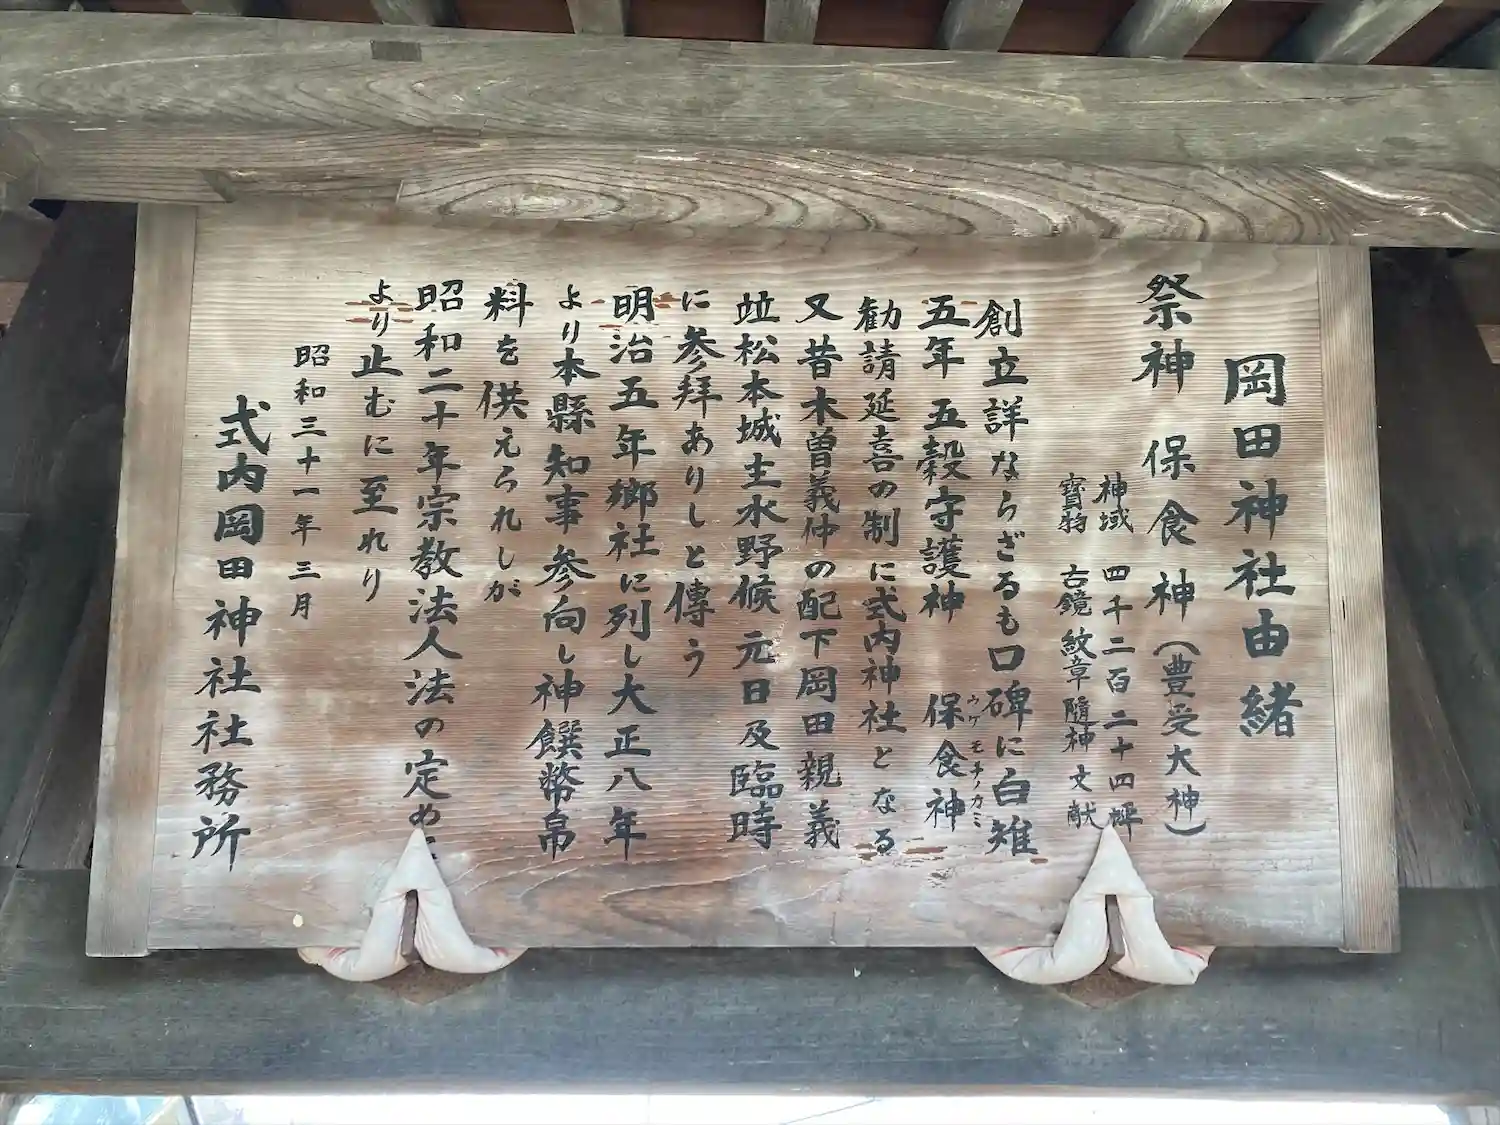 岡田神社由緒
祭神 保食神(豊受大神)
神域 四千二百二十四坪
寶物 古鏡 紋章 隨神 文献
創立詳ならざるも口碑に白雉
五年 五穀守護神 保食神
ウケモチノカミ
勧請延喜の制に式内神社となる
又昔木曽義仲の配下岡田親義
竝松本城主水野候元日及臨時
に参拜ありしと傳う
明治五年郷社に列し大正八年
より本縣知事参向し神饌幣帛
料を供えられしが
昭和二十年宗教法人法の定め
より止むに至れり
昭和三十一年三月
式内岡田神社社務所